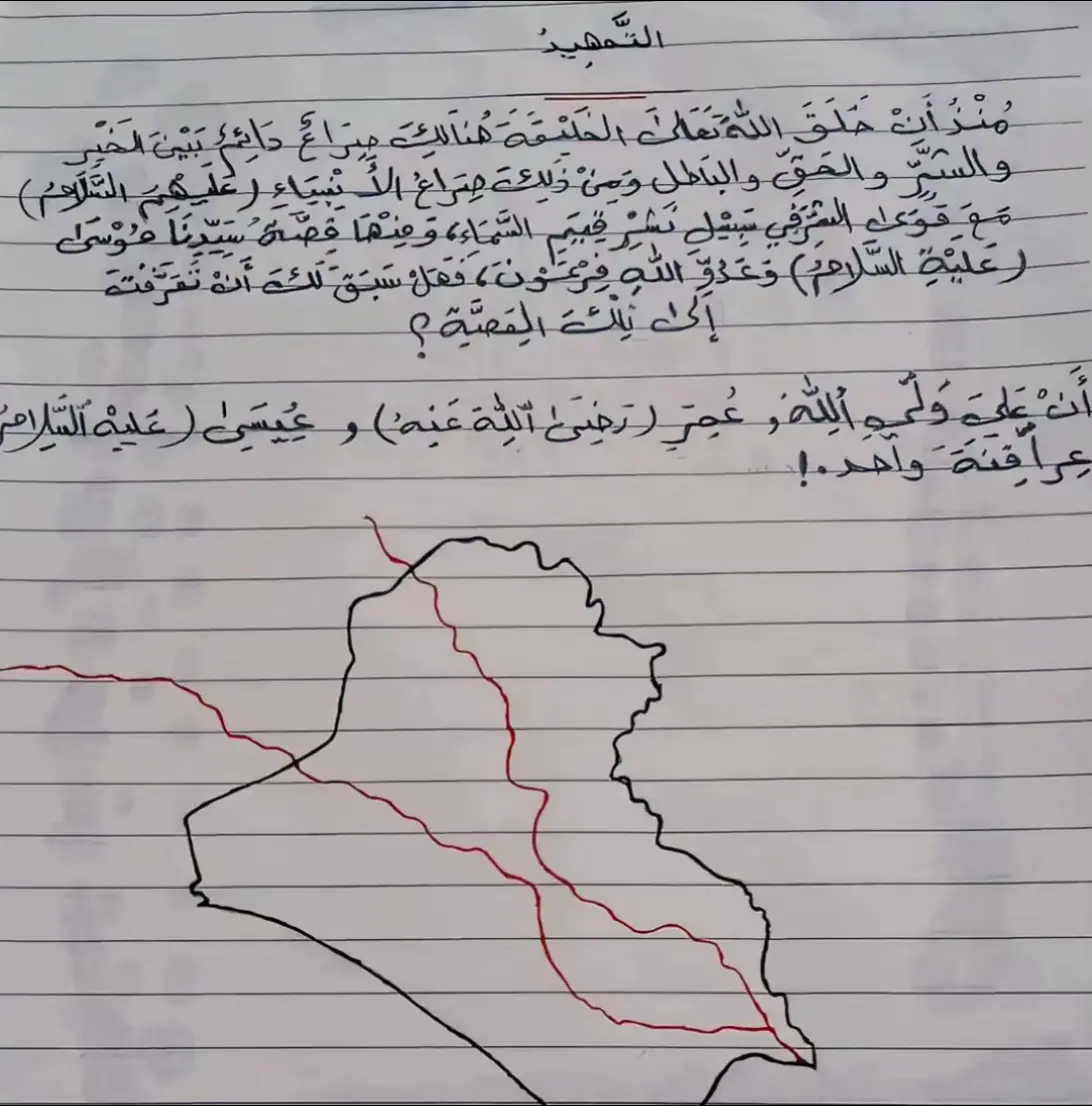 التَّمهِيدُ
مُنْذُ أَنْ خَلَقَ اللَّهُ تَعَالَىٰ الخَلِيْقَةَ هُنَالِكَ صِرَاعٌ دَائِمٌ بَيْنَ الخَيْرِ
والشَّرِّ والحَقِّ والبَاطل وَمِنْ ذَلِكَ صِرَاعُ الأَنْبِيَاءِ (عَلَيْهِمِ السَّلَامُ)
مَعَ قوَىٰ الشَّرِ فِي سَبِيْلِ نَشْرِ قِيَمِ السَّمَاءِ، وَمِنْهَا قِصَّةُ سَيِّدِنَا مُوْسَىٰ
(عَلَيْهِ السَّلَامُ) وَعَدُوِّ اللَّهِ فِرْعَوْنَ، فَهَلْ سَبَقَ لَكَ أَنْ تَعَرَّفْتَ
إِلَىٰ تِلْكَ القِصَّةِ؟
أَنْ عَلَيَ وَلَيِ أَللَّهَ و عُمَرِ (رَضِيَىٰ ٱللَّهَ عَنِهُ) و عِيْسَىٰ (عَلَيهْ ٱلسَّلَامُ
واحد.!